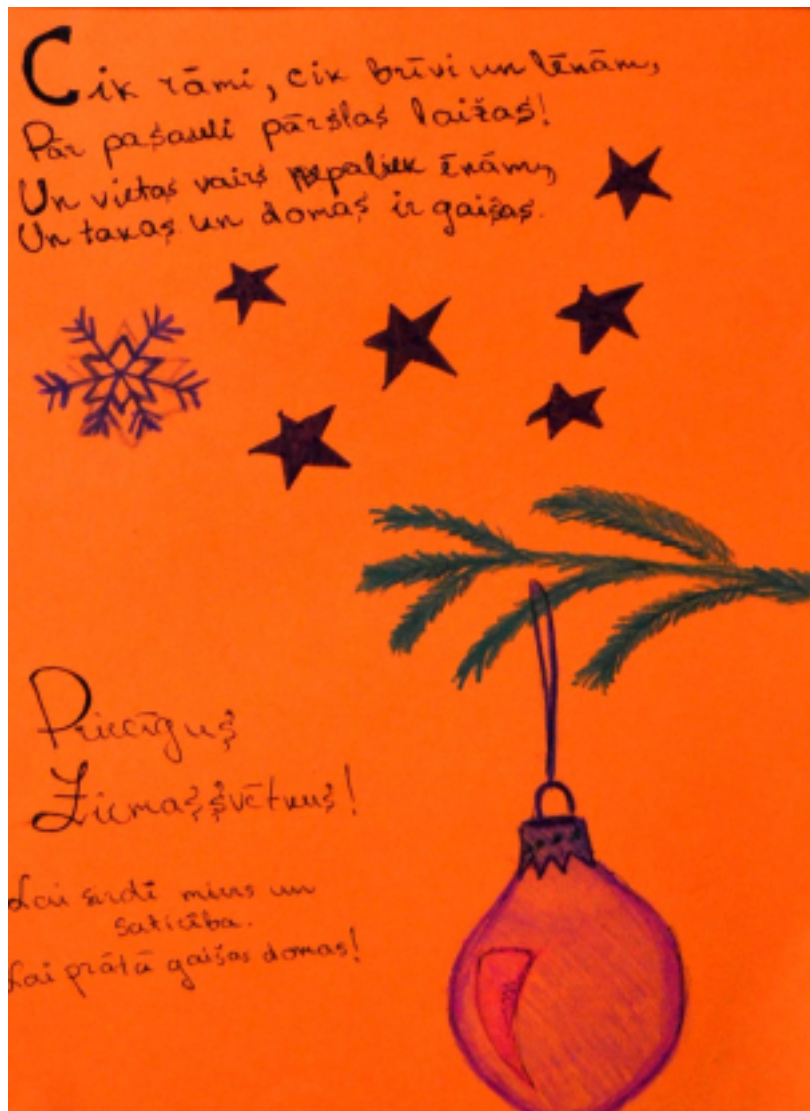 Cik rāmi, cik brīvi un lēnām,
Pār pasauli pārslas laižas!
Un vietas vairs nepaliek ēnām,
Un takas un domas ir gaišas.
Priecīgus
Ziemassvētkus!
Lai sirdī miers un
saticība.
Lai prātā gaišas domas!